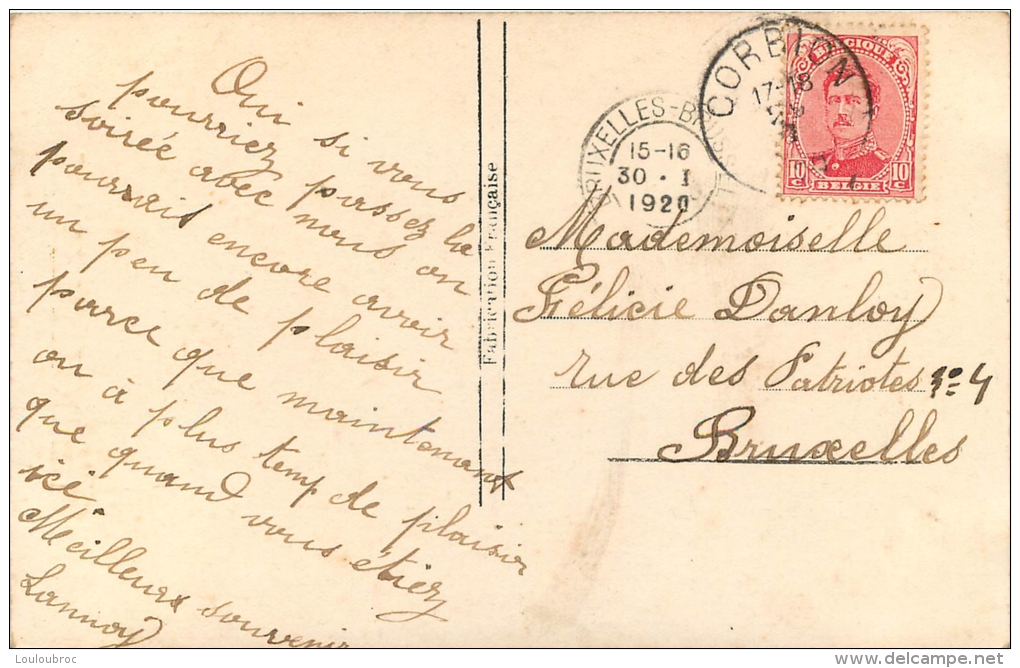 Oui si vous
pourriez passez la
soirée avec nous on
pourrais encore avoir
un peu de plaisir
parce que maintenant
on à plus temp de plaisir
que quand vous étiez
ici
Meilleurs souvenir
Lannoy
Fabrication Française
BRUXELLES-BRUSSEL
15-16
30 · I
1920
CORBION
17-18
BELGIQUE
10 c
10 c
BELGIE
Mademoiselle
Félicie Danloy
rue des Patriotes no 4
Bruxelles
Louloubroc
delcampe.net